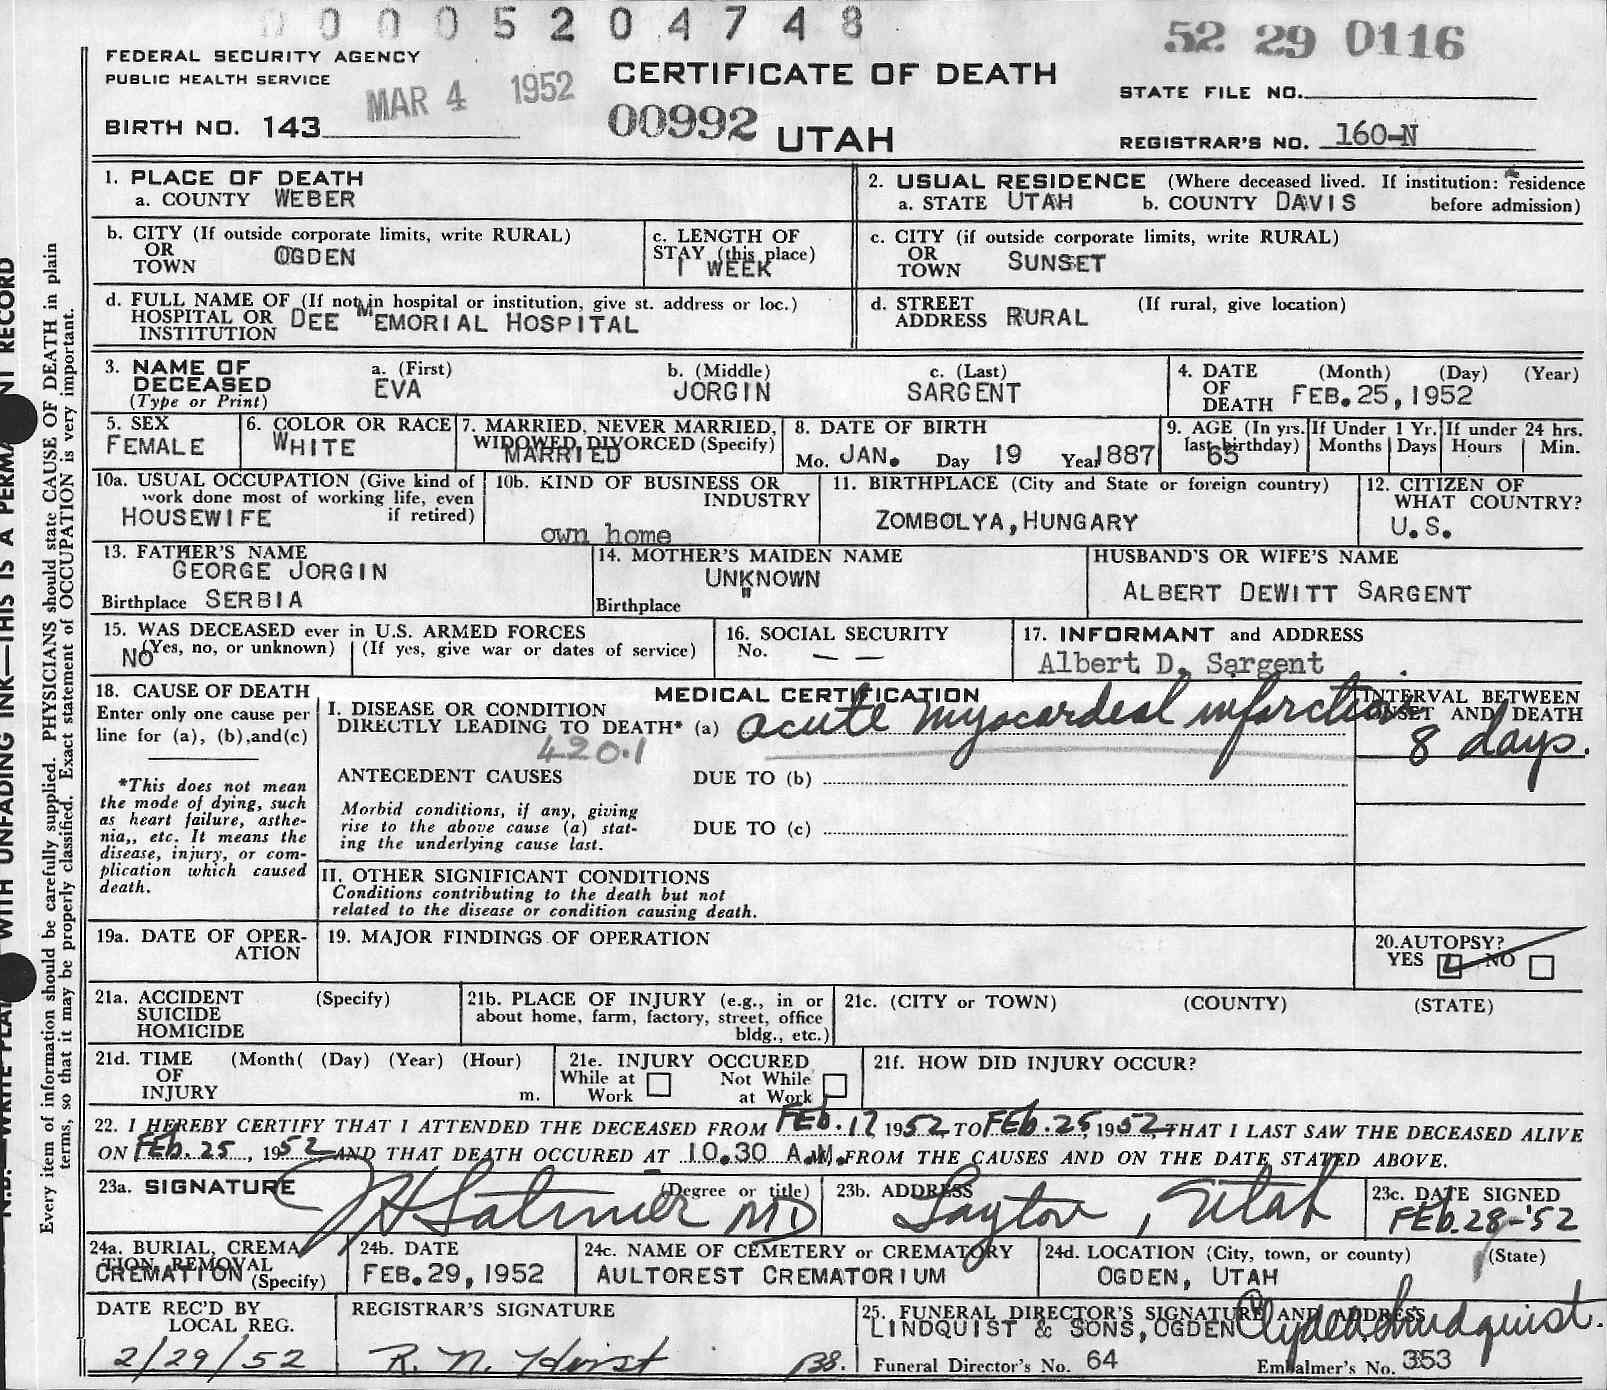 0 0 0 0 5 2 0 4 7 4 8
52 29 0116
FEDERAL SECURITY AGENCY
PUBLIC HEALTH SERVICE
MAR 4 1952
CERTIFICATE OF DEATH
STATE FILE NO.
BIRTH NO. 143
00992 UTAH
REGISTRAR'S NO. 160-N
1. PLACE OF DEATH
a. COUNTY WEBER
2. USUAL RESIDENCE (Where deceased lived. If institution: residence
a. STATE UTAH b. COUNTY DAVIS before admission)
b. CITY (If outside corporate limits, write RURAL)
OR
TOWN OGDEN
c. LENGTH OF
STAY (this place)
1 WEEK
c. CITY (if outside corporate limits, write RURAL)
OR
TOWN SUNSET
d. FULL NAME OF (If not in hospital or institution, give st. address or loc.)
HOSPITAL OR
INSTITUTION DEE MEMORIAL HOSPITAL
d. STREET (If rural, give location)
ADDRESS RURAL
3. NAME OF
DECEASED
(Type or Print)
a. (First) b. (Middle) c. (Last)
EVA JORGIN SARGENT
4. DATE (Month) (Day) (Year)
OF
DEATH FEB. 25, 1952
5. SEX
FEMALE
6. COLOR OR RACE
WHITE
7. MARRIED, NEVER MARRIED,
WIDOWED, DIVORCED (Specify)
MARRIED
8. DATE OF BIRTH
Mo. JAN. Day 19 Year 1887
9. AGE (In yrs.
last birthday)
65
If Under 1 Yr.
Months Days
If under 24 hrs.
Hours Min.
10a. USUAL OCCUPATION (Give kind of
work done most of working life, even
HOUSEWIFE if retired)
10b. KIND OF BUSINESS OR
INDUSTRY
own home
11. BIRTHPLACE (City and State or foreign country)
ZOMBOLYA, HUNGARY
12. CITIZEN OF
WHAT COUNTRY?
U.S.
13. FATHER'S NAME
GEORGE JORGIN
Birthplace SERBIA
14. MOTHER'S MAIDEN NAME
UNKNOWN
Birthplace "
HUSBAND'S OR WIFE'S NAME
ALBERT DEWITT SARGENT
15. WAS DECEASED ever in U.S. ARMED FORCES
(Yes, no, or unknown) (If yes, give war or dates of service)
NO
16. SOCIAL SECURITY
No. — —
17. INFORMANT and ADDRESS
Albert D. Sargent
18. CAUSE OF DEATH
Enter only one cause per
line for (a), (b),and(c)
*This does not mean
the mode of dying, such
as heart failure, asthe-
nia,, etc. It means the
disease, injury, or com-
plication which caused
death.
MEDICAL CERTIFICATION
I. DISEASE OR CONDITION
DIRECTLY LEADING TO DEATH* (a) acute myocardeal infarction
420.1
INTERVAL BETWEEN
ONSET AND DEATH
8 days.
ANTECEDENT CAUSES DUE TO (b)
Morbid conditions, if any, giving
rise to the above cause (a) stat-
ing the underlying cause last.
DUE TO (c)
II. OTHER SIGNIFICANT CONDITIONS
Conditions contributing to the death but not
related to the disease or condition causing death.
19a. DATE OF OPER-
ATION
19. MAJOR FINDINGS OF OPERATION
20. AUTOPSY?
YES NO
21a. ACCIDENT (Specify)
SUICIDE
HOMICIDE
21b. PLACE OF INJURY (e.g., in or
about home, farm, factory, street, office
bldg., etc.)
21c. (CITY or TOWN) (COUNTY) (STATE)
21d. TIME (Month( (Day) (Year) (Hour)
OF
INJURY m.
21e. INJURY OCCURED
While at Work Not While at Work
21f. HOW DID INJURY OCCUR?
22. I HEREBY CERTIFY THAT I ATTENDED THE DECEASED FROM FEB. 17 1952 TO FEB. 25, 1952, THAT I LAST SAW THE DECEASED ALIVE
ON FEB. 25, 1952 AND THAT DEATH OCCURED AT 10.30 A.M. FROM THE CAUSES AND ON THE DATE STATED ABOVE.
23a. SIGNATURE (Degree or title)
MD
23b. ADDRESS
Layton, Utah
23c. DATE SIGNED
FEB. 28-'52
24a. BURIAL, CREMA
TION, REMOVAL
CREMATION (Specify)
24b. DATE
FEB. 29, 1952
24c. NAME OF CEMETERY or CREMATORY
AULTOREST CREMATORIUM
24d. LOCATION (City, town, or county) (State)
OGDEN, UTAH
DATE REC'D BY
LOCAL REG.
2/29/52
REGISTRAR'S SIGNATURE
25. FUNERAL DIRECTOR'S SIGNATURE AND ADDRESS
LINDQUIST & SONS, OGDEN
Funeral Director's No. 64 Embalmer's No. 353
Every item of information should be carefully supplied. PHYSICIANS should state CAUSE OF DEATH in plain
terms, so that it may be properly classified. Exact statement of OCCUPATION is very important.
WITH UNFADING INK—THIS IS A